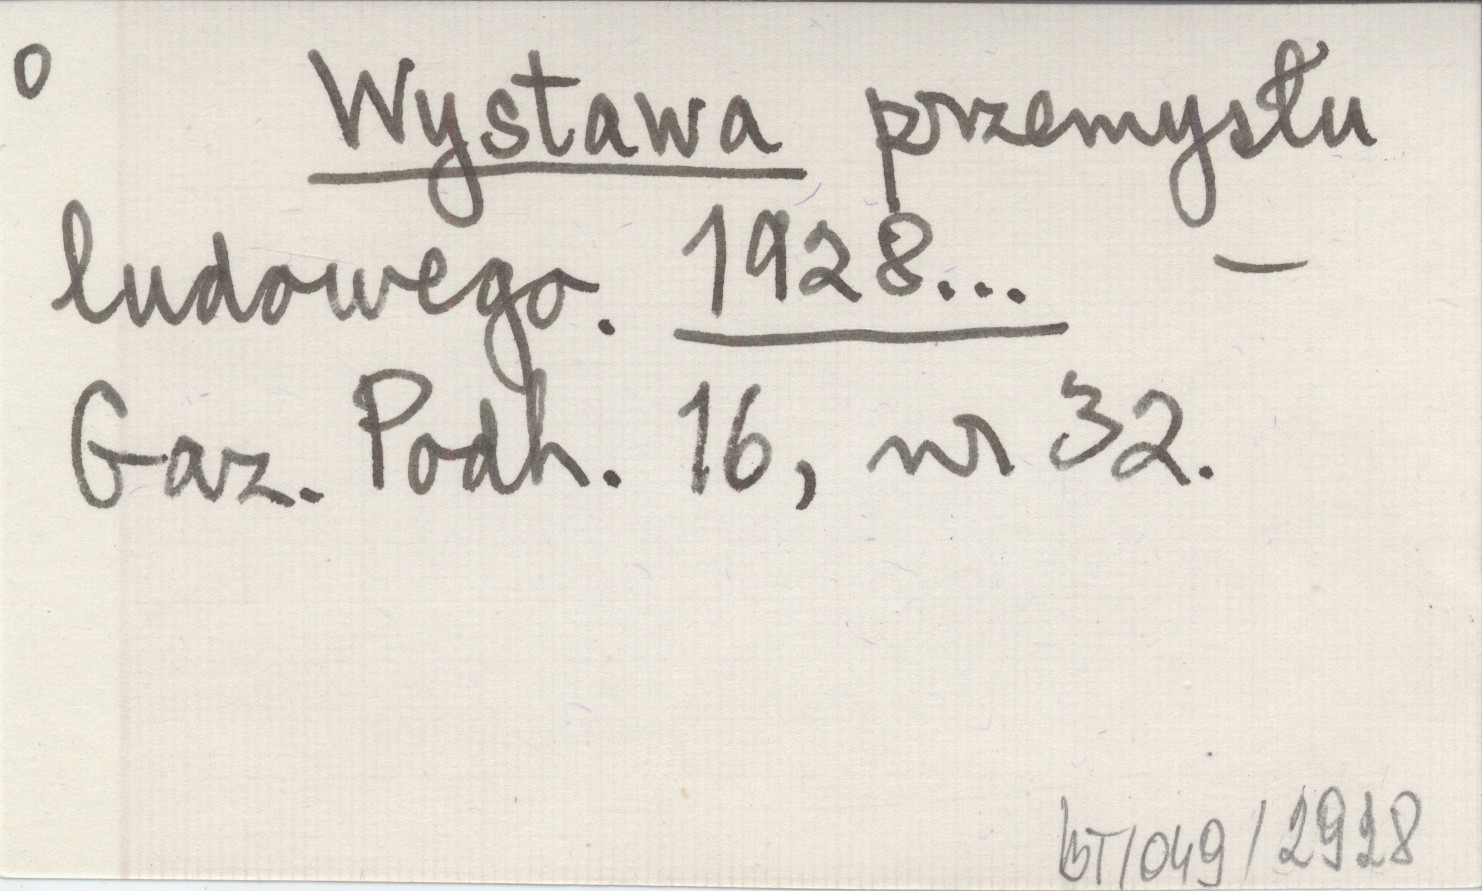 o Wystawa przemysłu
ludowego. 1928... –
Gaz. Podh. 16, nr 32.
KBT/049/2928